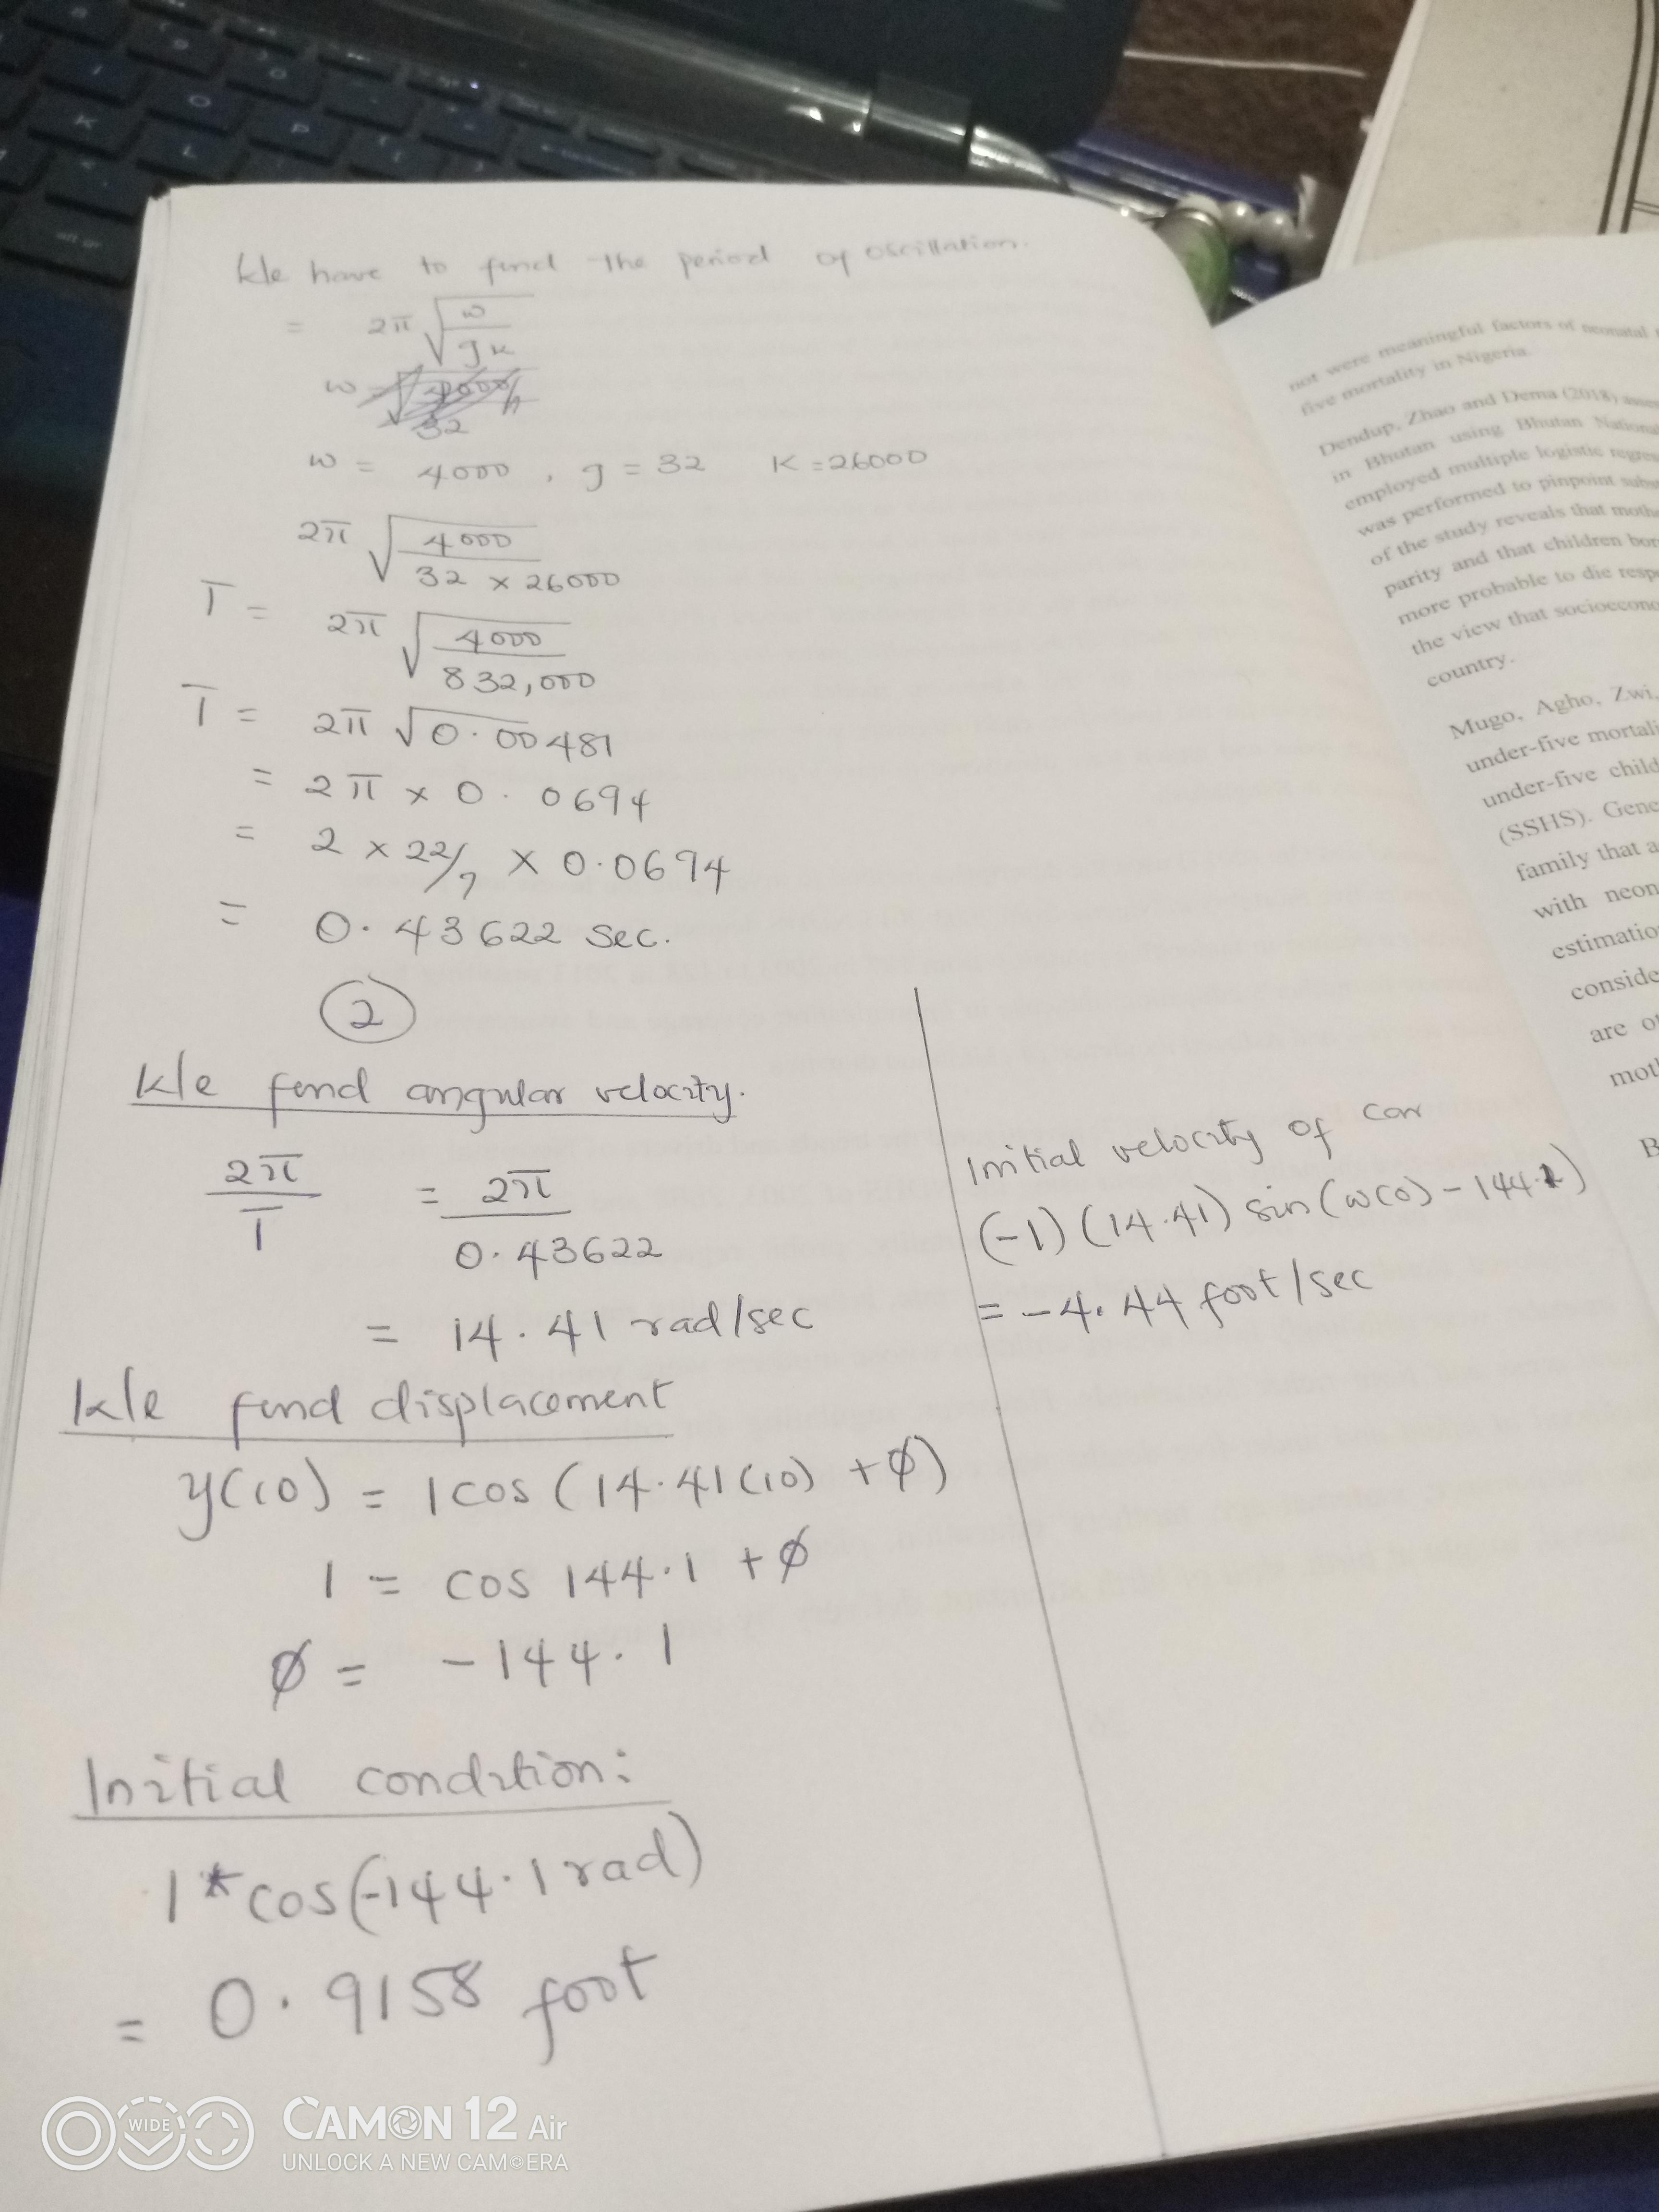 We have to find the period of oscillation.
= 2π √(w/gk)
w = 4000, g = 32 K = 26000
2π √(4000/32 × 26000)
T = 2π √(4000/832,000)
T = 2π √0.00481
= 2π × 0.0694
= 2 × 22/7 × 0.0694
= 0.43622 sec.
2
We find angular velocity.
2π/T = 2π/0.43622
= 14.41 rad/sec
We find displacement
y(10) = 1cos(14.41(10) + ϕ)
1 = cos 144.1 + ϕ
ϕ = -144.1
Initial condition:
1*cos(-144.1 rad)
= 0.9158 foot
Initial velocity of car
(-1)(14.41) sin(w(0) - 144.1)
= -4.44 foot/sec
not were meaningful factors of neonatal
five mortality in Nigeria.
Dendup, Zhao and Dema (2018)
in Bhutan using Bhutan National
employed multiple logistic
was performed to pinpoint
of the study reveals that
parity and that children
more probable to die
the view that
country.
Mugo, Agho, Zwi,
under-five
under-five child
(SSHS).
family that a
with
are
CAMON 12 Air
UNLOCK A NEW CAMERA
WIDE